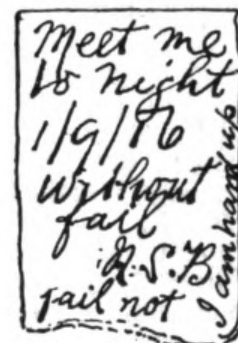 Meet me
to night
1/9/16
without
fail
R.S.B
fail not
I am hard up